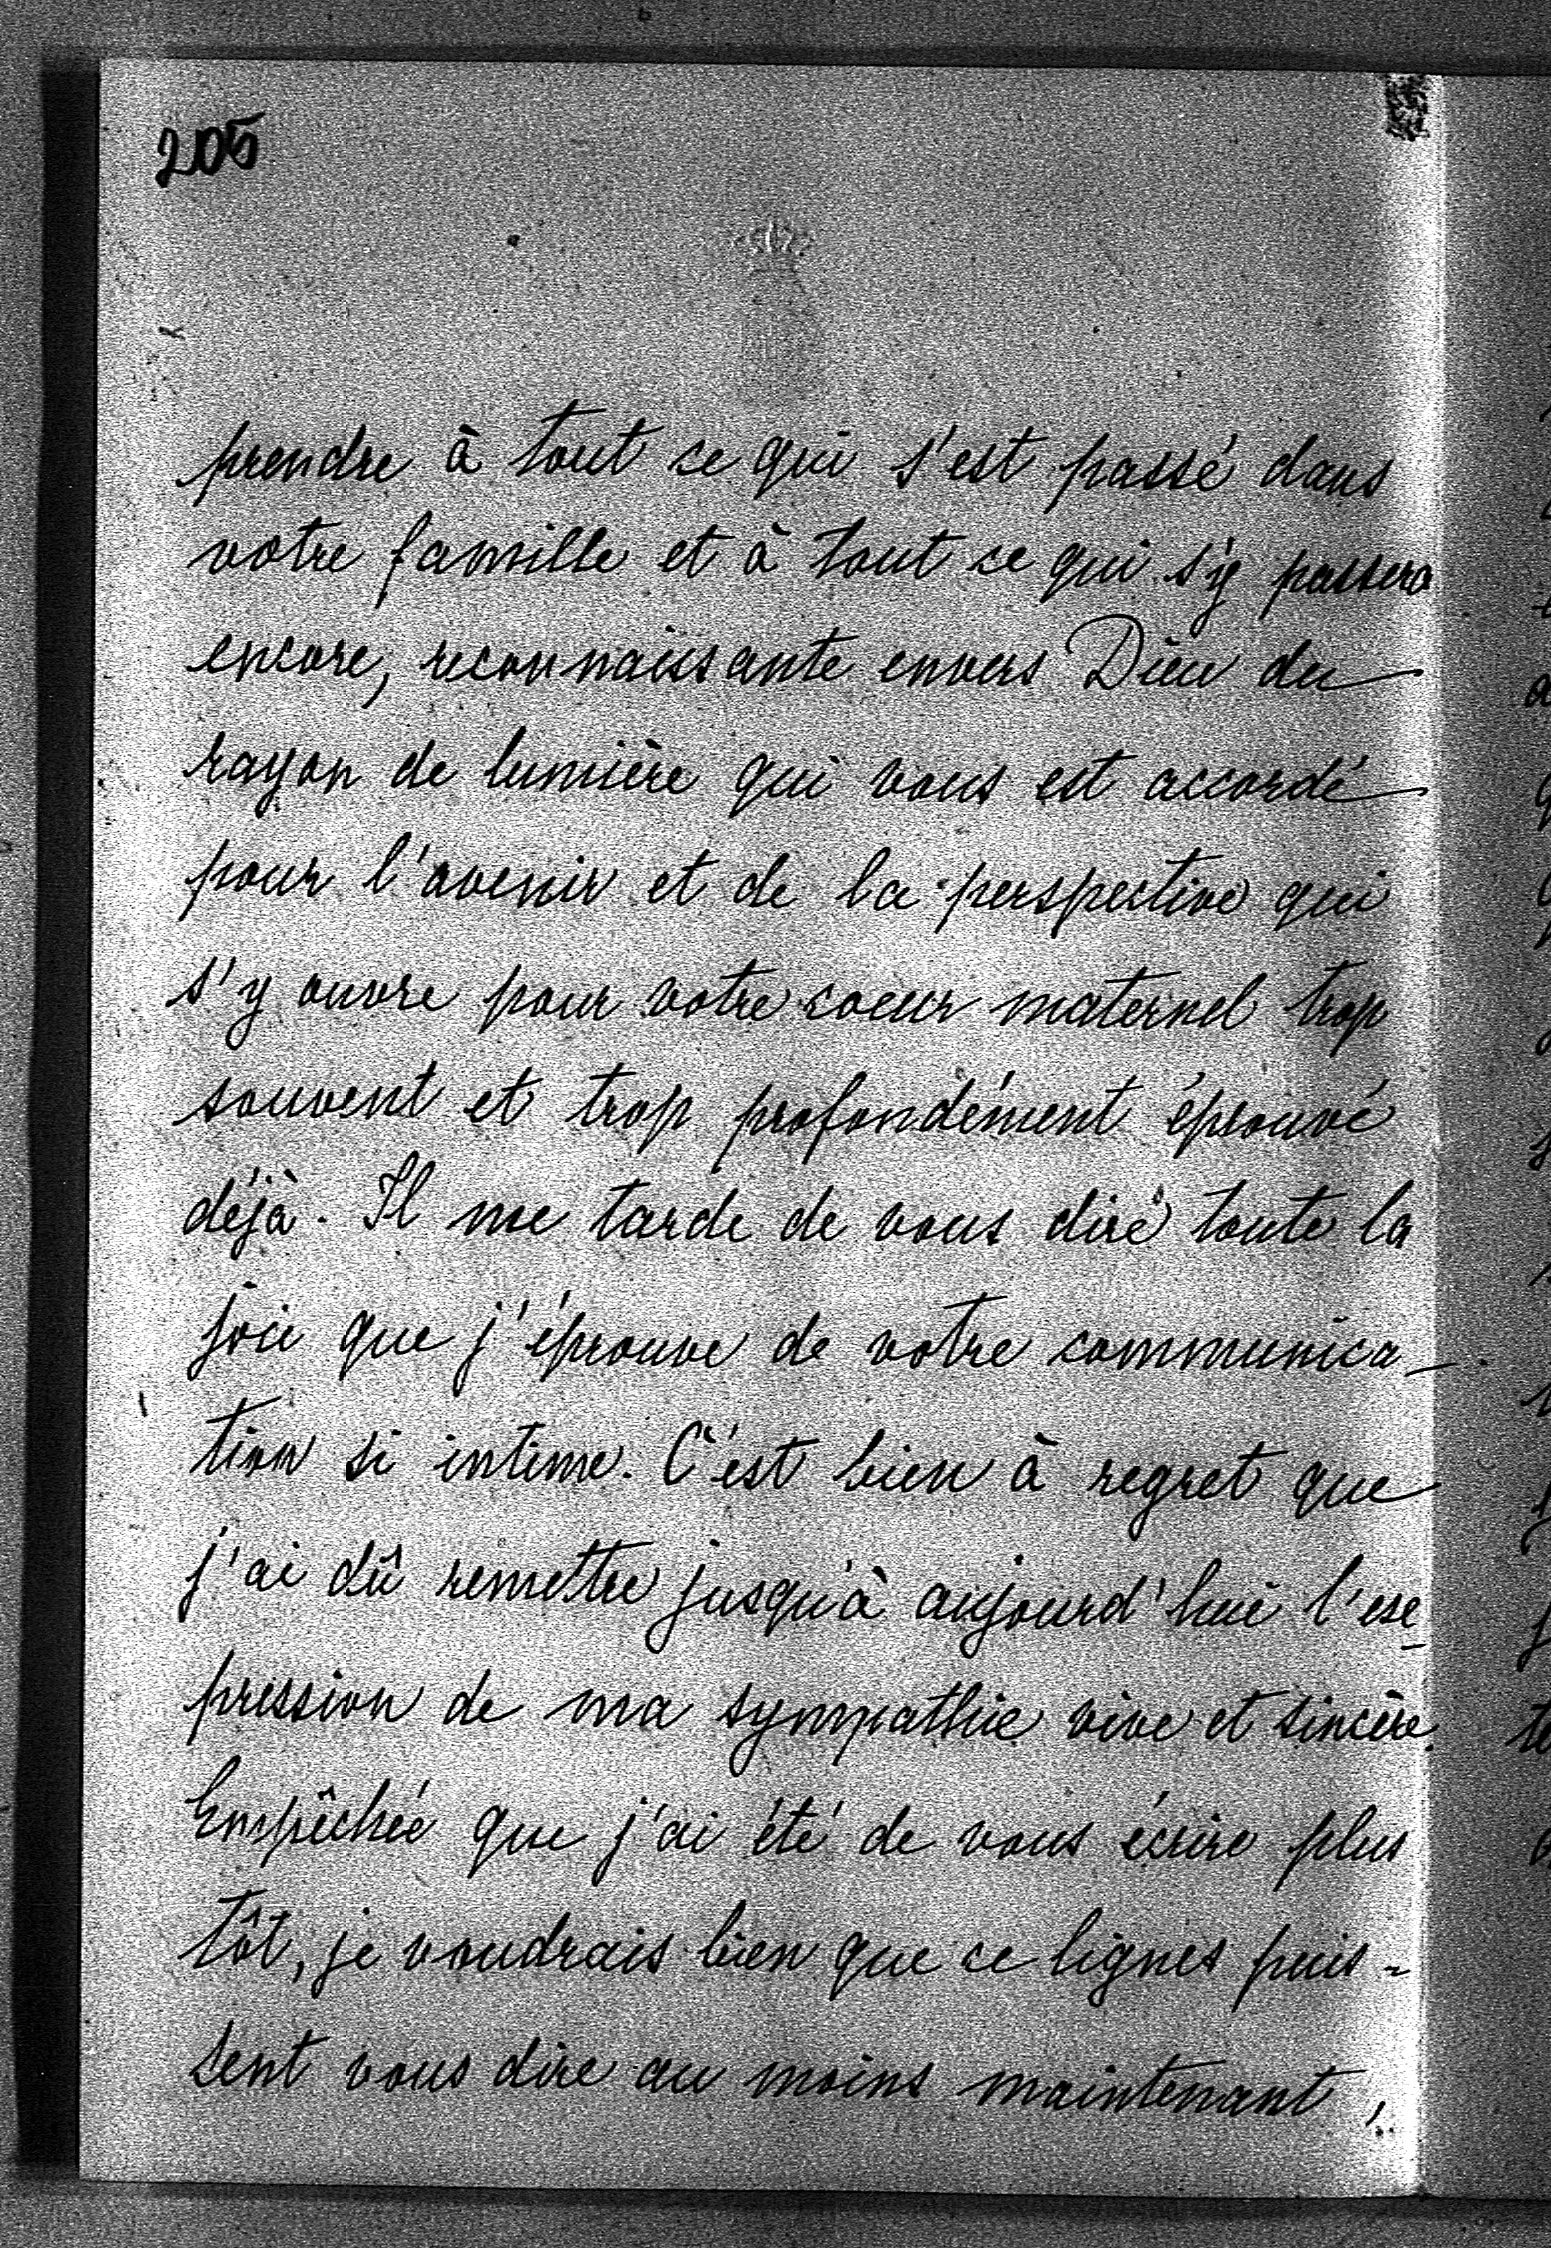 205
prendre à tout ce qui s'est passé dans
votre famille et à tout ce qui s'y passera
encore, reconnaissante envers Dieu du
rayon de lumière qui vous est accordé
pour l'avenir et de la perspective qui
s'y ouvre pour votre coeur maternel trop
souvent et trop profondément éprouvé
déjà. Il me tarde de vous dire toute la
joie que j'éprouve de votre communica-
tion si intime. C'est bien à regret que
j'ai dû remettre jusqu'à aujourd'hui l'ex-
pression de ma sympathie vive et sincère.
Empêchée que j'ai été de vous écrire plus
tôt, je voudrais bien que ce lignes puis-
sent vous dire au moins maintenant,